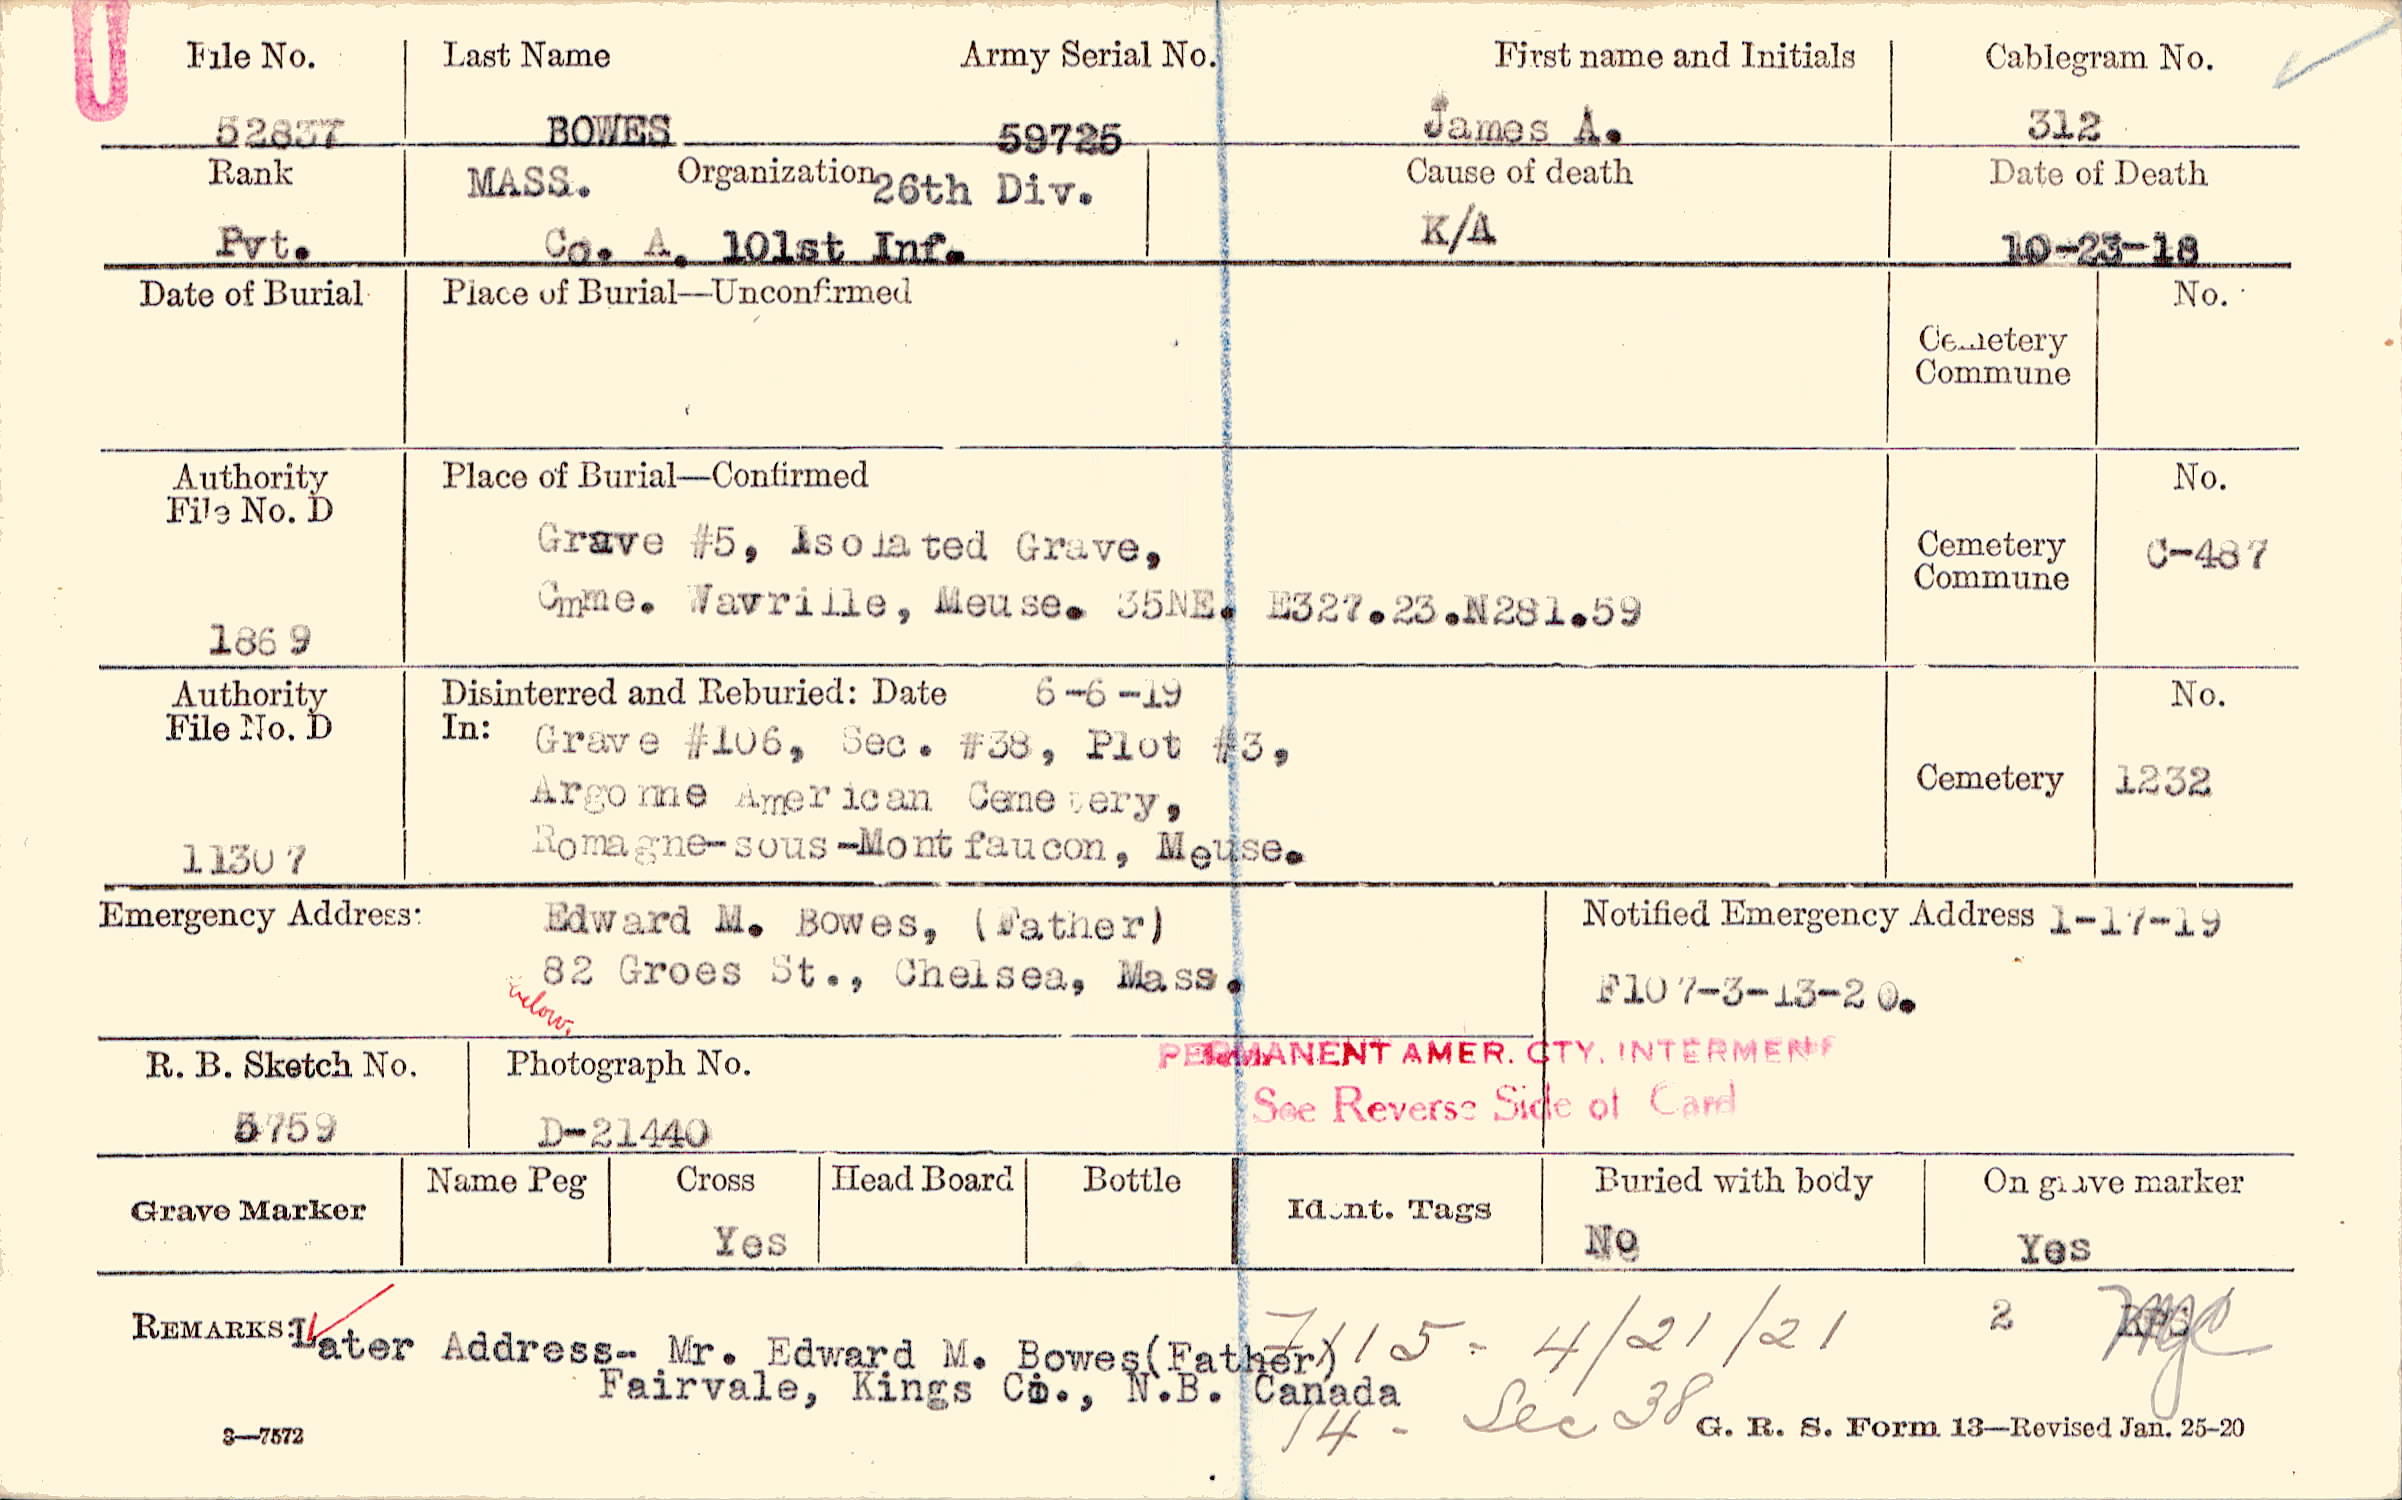 File No. Last Name Army Serial No. First name and Initials Cablegram No.
52837 BOWES 59725 James A. 312
Rank MASS. Organization 26th Div. Cause of death Date of Death
Pvt. Co. A. 101st Inf. K/A 10-23-18
Date of Burial Place of Burial—Unconfirmed No.
Cemetery
Commune
Authority Place of Burial—Confirmed No.
File No. D
Grave #5, Isolated Grave, Cemetery C-487
Commune
Cmme. Wavrille, Meuse. 35NE. E327.23.N281.59
1869
Authority Disinterred and Reburied: Date 6-6-19 No.
File No. D In: Grave #106, Sec. #38, Plot #3,
Argonne American Cemetery, Cemetery 1232
Romagne-sous-Montfaucon, Meuse.
11307
Emergency Address: Edward M. Bowes, (Father) Notified Emergency Address 1-17-19
82 Groes St., Chelsea, Mass. F107-3-13-20.
below.
PERMANENT AMER. CTY. INTERMENT
R. B. Sketch No. Photograph No. See Reverse Side of Card
5759 D-21440
Grave Marker Name Peg Cross Head Board Bottle Ident. Tags Buried with body On grave marker
Yes No Yes
REMARKS: Later Address- Mr. Edward M. Bowes(Father) 4/21/21 2
Fairvale, Kings Co., N.B. Canada
14 - Sec 38
3—7572 G. R. S. Form 13—Revised Jan. 25-20